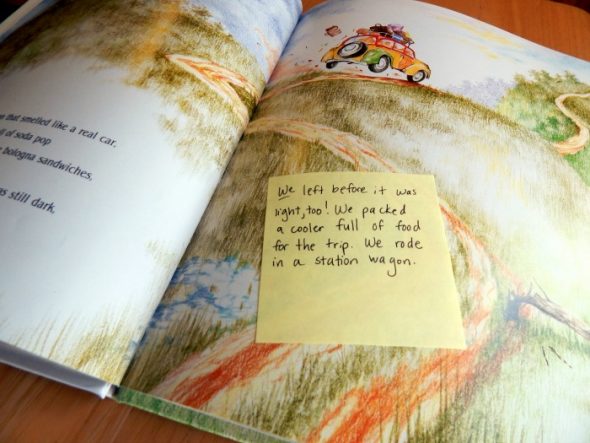 that smelled like a real car,
of soda pop
bologna sandwiches,
s still dark,
We left before it was
light, too! We packed
a cooler full of food
for the trip. We rode
in a station wagon.